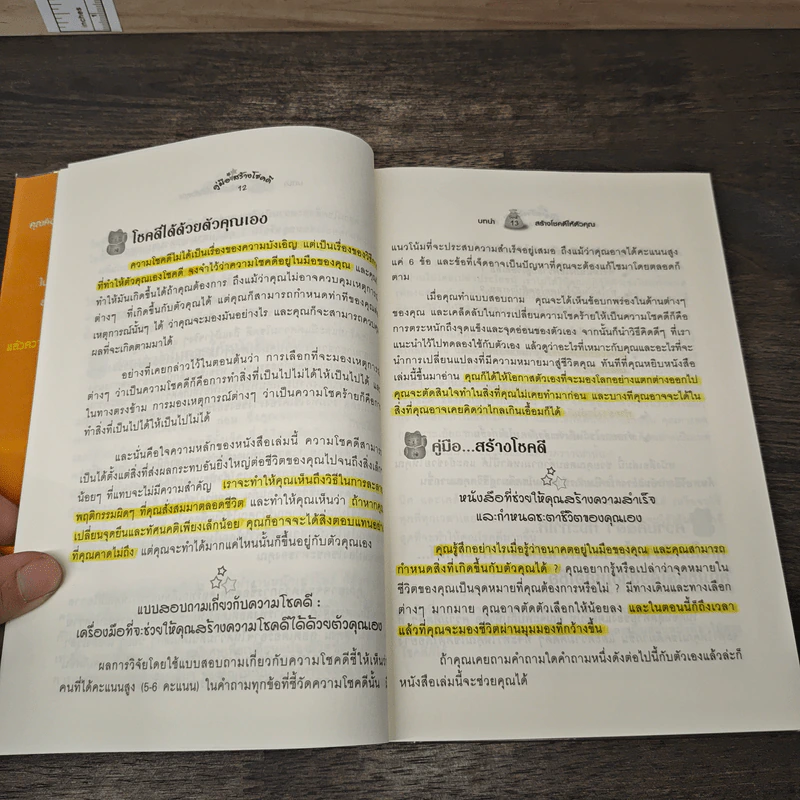 คู่มือสร้างโชคดี
12
โชคดีได้ด้วยตัวคุณเอง
ความโชคดีไม่ได้เป็นเรื่องของความบังเอิญ แต่เป็นเรื่องของวิธีการ
ที่ทำให้ตัวคุณเองโชคดี จงจำไว้ว่าความโชคดีอยู่ในมือของคุณ และคุณ
ทำให้มันเกิดขึ้นได้ถ้าคุณต้องการ ถึงแม้ว่าคุณไม่อาจควบคุมเหตุการณ์
ต่างๆ ที่เกิดขึ้นกับตัวคุณได้ แต่คุณก็สามารถกำหนดท่าทีของคุณต่อ
เหตุการณ์นั้นๆ ได้ ว่าคุณจะมองมันอย่างไร และคุณก็จะสามารถควบคุม
ผลที่จะเกิดตามมาได้
อย่างที่เคยกล่าวไว้ในตอนต้นว่า การเลือกที่จะมองเหตุการณ์
ต่างๆ ว่าเป็นความโชคดีก็คือการทำสิ่งที่เป็นไปไม่ได้ให้เป็นไปได้ และ
ในทางตรงข้าม การมองเหตุการณ์ต่างๆ ว่าเป็นความโชคร้ายก็คือการ
ทำสิ่งที่เป็นไปได้ให้เป็นไปไม่ได้
และนั่นคือใจความหลักของหนังสือเล่มนี้ ความโชคดีสามารถ
เป็นได้ตั้งแต่สิ่งที่ส่งผลกระทบอันยิ่งใหญ่ต่อชีวิตของคุณไปจนถึงสิ่งเล็ก
น้อยๆ ที่แทบจะไม่มีความสำคัญ เราจะทำให้คุณเห็นถึงวิธีในการละลาย
พฤติกรรมผิดๆ ที่คุณสั่งสมมาตลอดชีวิต และทำให้คุณเห็นว่า ถ้าหากคุณ
เปลี่ยนจุดยืนและทัศนคติเพียงเล็กน้อย คุณก็อาจจะได้สิ่งตอบแทนอย่าง
ที่คุณคาดไม่ถึง แต่คุณจะทำได้มากแค่ไหนนั้นก็ขึ้นอยู่กับตัวคุณเอง
แบบสอบถามเกี่ยวกับความโชคดี :
เครื่องมือที่จะช่วยให้คุณสร้างความโชคดีได้ด้วยตัวคุณเอง
ผลการวิจัยโดยใช้แบบสอบถามเกี่ยวกับความโชคดีชี้ให้เห็นว่า
คนที่ได้คะแนนสูง (5-6 คะแนน) ในคำถามทุกข้อที่ชี้วัดความโชคดีนั้น
บทนำ 13 สร้างโชคดีให้ตัวคุณ
แนวโน้มที่จะประสบความสำเร็จอยู่เสมอ ถึงแม้ว่าคุณอาจได้คะแนนสูง
แค่ 6 ข้อ และข้อที่เจ็ดอาจเป็นปัญหาที่คุณจะต้องแก้ไขมาโดยตลอดก็
ตาม
เมื่อคุณทำแบบสอบถาม คุณจะได้เห็นข้อบกพร่องในด้านต่างๆ
ของคุณ และเคล็ดลับในการเปลี่ยนความโชคร้ายให้เป็นความโชคดีก็คือ
การตระหนักถึงจุดแข็งและจุดอ่อนของตัวเอง จากนั้นก็นำวิธีคิดดีๆ ที่เรา
แนะนำไว้ไปทดลองใช้กับตัวเอง แล้วดูว่าอะไรที่เหมาะกับคุณและอะไรที่จะ
นำการเปลี่ยนแปลงที่มีความหมายมาสู่ชีวิตคุณ ทันทีที่คุณหยิบหนังสือ
เล่มนี้ขึ้นมาอ่าน คุณก็ได้ให้โอกาสตัวเองที่จะมองโลกอย่างแตกต่างออกไป
คุณจะตัดสินใจทำในสิ่งที่คุณไม่เคยทำมาก่อน และบางทีคุณอาจจะได้ใน
สิ่งที่คุณอาจเคยคิดว่าไกลเกินเอื้อมก็ได้
คู่มือ...สร้างโชคดี
หนังสือที่ช่วยให้คุณสร้างความสำเร็จ
และกำหนดชะตาชีวิตของคุณเอง
คุณรู้สึกอย่างไรเมื่อรู้ว่าอนาคตอยู่ในมือของคุณ และคุณสามารถ
กำหนดสิ่งที่เกิดขึ้นกับตัวคุณได้ ? คุณอยากรู้หรือเปล่าว่าจุดหมายใน
ชีวิตของคุณเป็นจุดหมายที่คุณต้องการหรือไม่ ? มีทางเดินและทางเลือก
ต่างๆ มากมาย คุณอาจตัดตัวเลือกให้น้อยลง และในตอนนี้ก็ถึงเวลา
แล้วที่คุณจะมองชีวิตผ่านมุมมองที่กว้างขึ้น
ถ้าคุณเคยถามคำถามใดคำถามหนึ่งดังต่อไปนี้กับตัวเองแล้วล่ะก็
หนังสือเล่มนี้จะช่วยคุณได้